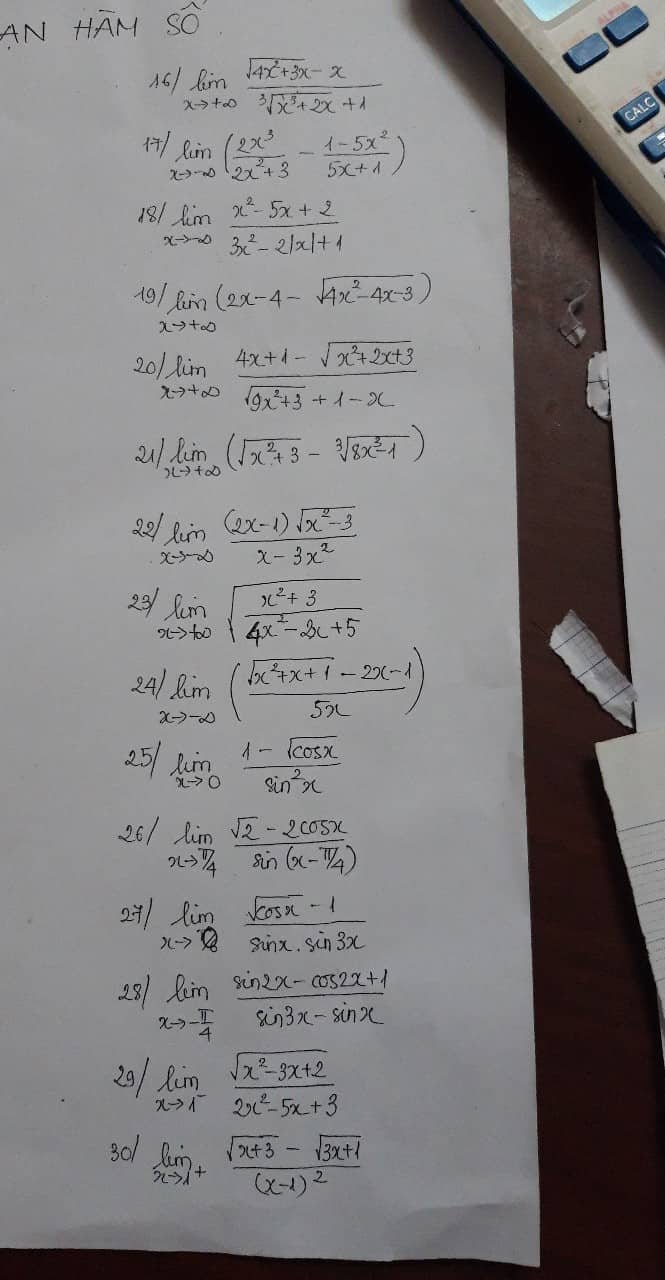 ẠN HÀM SỐ
ALPHA
CALC
16/ lim x→+∞ (√(4x²+3x) - x)/(∛(x³+2x) + 1)
17/ lim x→-∞ (2x³/(2x²+3) - (1-5x²)/(5x+1))
18/ lim x→-∞ (x²-5x+2)/(3x²-2|x|+1)
19/ lim x→+∞ (2x-4-√(4x²-4x-3))
20/ lim x→+∞ (4x+1-√(x²+2x+3))/(√(9x²+3)+1-x)
21/ lim x→+∞ (√(x²+3) - ∛(8x³-1))
22/ lim x→-∞ (2x-1)√(x²-3)/(x-3x²)
23/ lim x→+∞ √((x²+3)/(4x²-2x+5))
24/ lim x→-∞ ((√(x²+x+1)-2x-1)/5x)
25/ lim x→0 (1-√cosx)/sin²x
26/ lim x→π/4 (√2-2cosx)/sin(x-π/4)
27/ lim x→0 (√cosx - 1)/(sinx.sin3x)
28/ lim x→-π/4 (sin2x-cos2x+1)/(sin3x-sinx)
29/ lim x→1⁻ √(x²-3x+2)/(2x²-5x+3)
30/ lim x→1⁺ (√(x+3) - √(3x+1))/(x-1)²